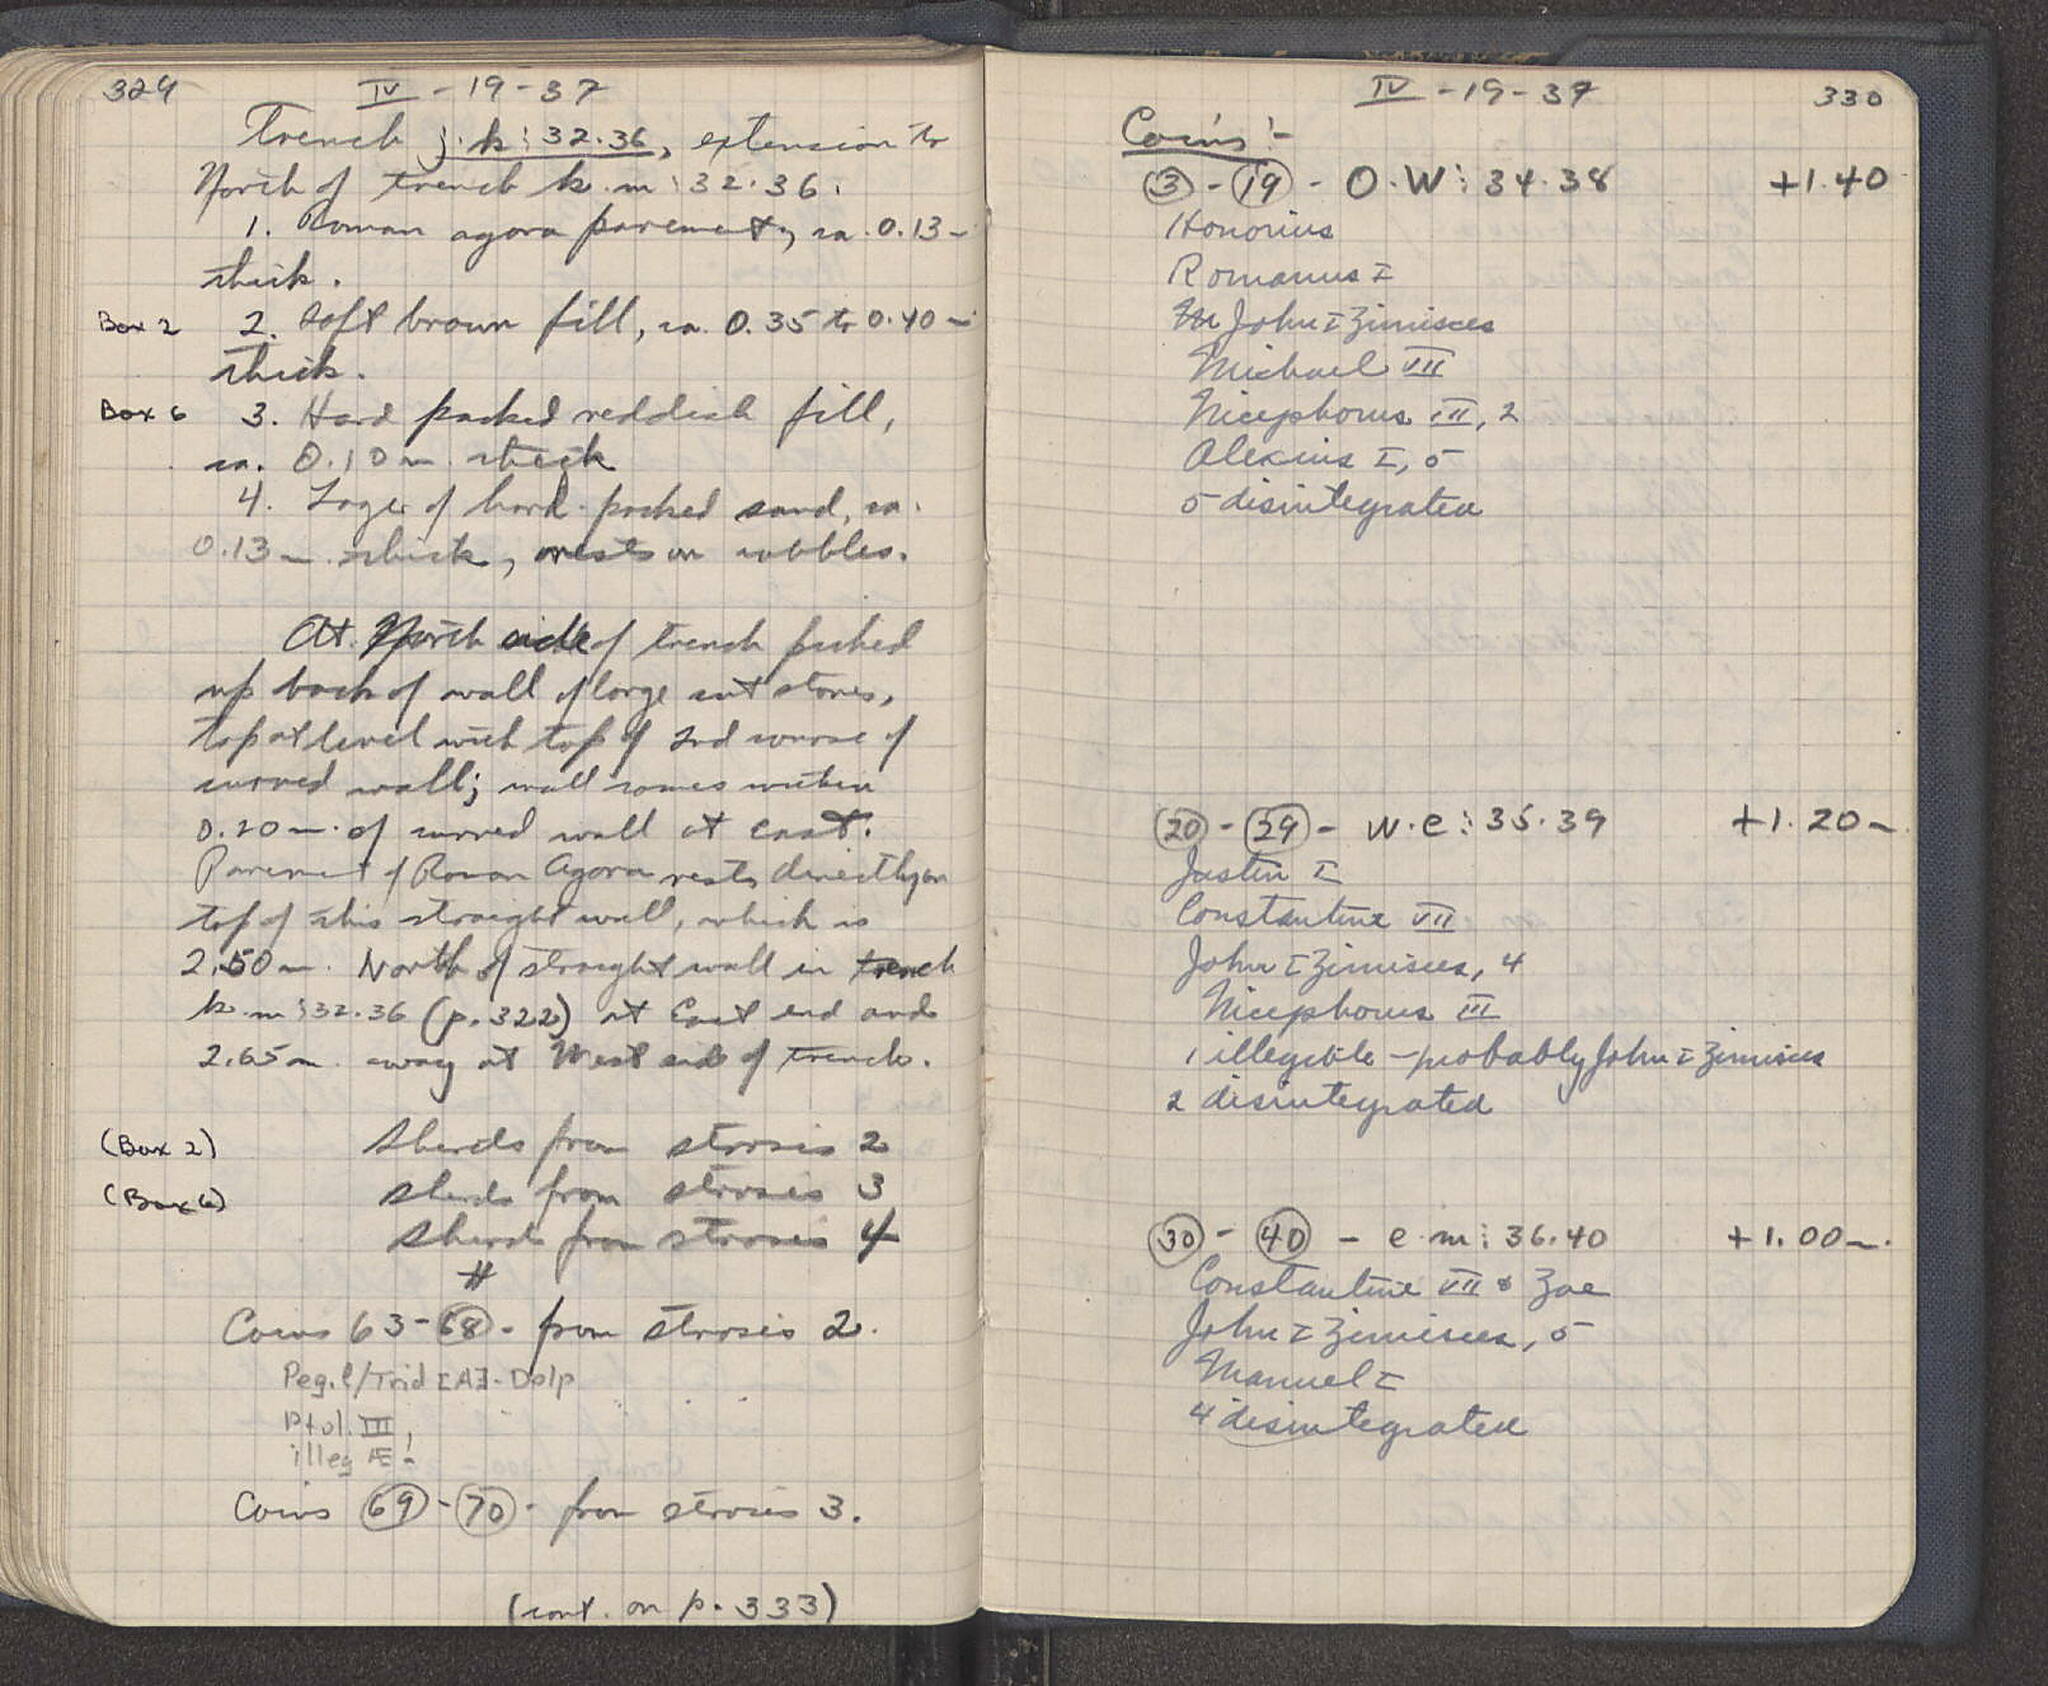 329
IV - 19 - 37
Trench j.k:32.36, extension to
North of trench k.m:32.36.
1. Roman agora pavement, ca. 0.13 m
thick.
Box 2 2. Soft brown fill, ca. 0.35 to 0.40 m
thick.
Box 6 3. Hard packed reddish fill,
ca. 0.10 m. thick
4. Layer of hard-packed sand, ca.
0.13 m. thick, rests on cobbles.
At North side of trench picked
up back of wall of large cut stones,
top at level with top of 2nd course of
curved wall; wall comes within
0.20 m. of curved wall at east.
Pavement of Roman Agora rests directly on
top of this straight wall, which is
2.50 m. North of straight wall in trench
k.m:32.36 (p. 322) at East end and
2.65 m. away at West end of trench.
(Box 2) Sherds from strosis 2
(Box 6) Sherds from strosis 3
Sherds from strosis 4
#
Coins 63-68 - from strosis 2.
Peg.l/Trid [A]. Dolp
Ptol. III,
illeg Æ -
Coins 69 - 70 - from strosis 3.
(cont. on p. 333)
IV - 19 - 37
330
Coins:-
3 - 19 - O.W:34.38 +1.40
Honorius
Romanus I
John I Zimisces
Michael VII
Nicephorus III, 2
Alexius I, 5
5 disintegrated
20 - 29 - W.C:35.39 +1.20 m.
Justin I
Constantine VII
John I Zimisces, 4
Nicephorus III
1 illegible - probably John I Zimisces
2 disintegrated
30 - 40 - e.m:36.40 +1.00 m.
Constantine VII & Zoe
John I Zimisces, 5
Manuel I
4 disintegrated